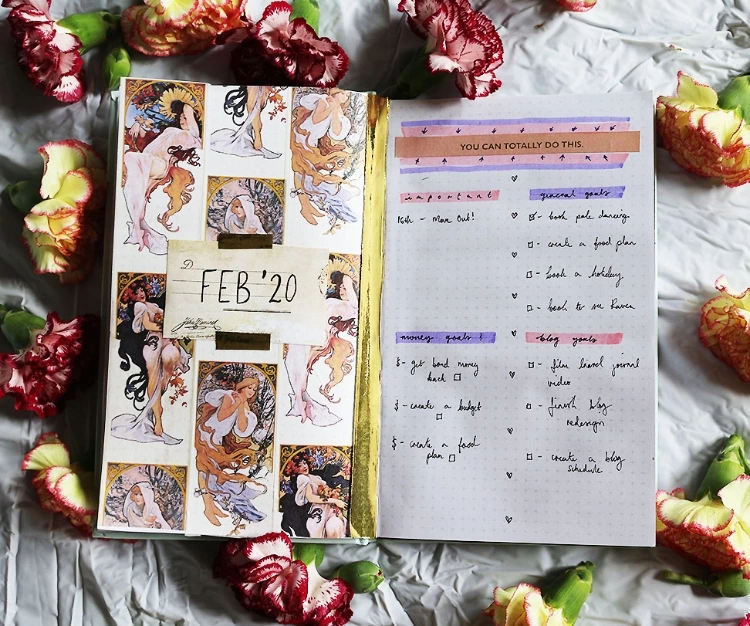 D
FEB '20
YOU CAN TOTALLY DO THIS.
important
16th - Move Out!
general goals
- book pole dancing
- create a food plan
- book a holiday
- book to see Raven
money goals!
$ - get bond money
back
$ - create a budget
$ - create a food
plan
blog goals
- film travel journal
video
- finish blog
redesign
- create a blog
schedule